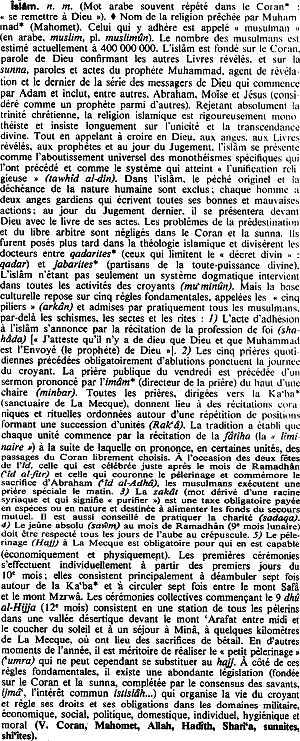 Islām. n. m. (Mot arabe souvent répété dans le Coran* :
« se remettre à Dieu »). ♦ Nom de la religion prêchée par Muham-
mad* (Mahomet). Celui qui y adhère est appelé « musulman »
(en arabe, muslim, pl. muslimûn). Le nombre des musulmans est
estimé actuellement à 400 000 000. L'islâm est fondé sur le Coran,
parole de Dieu confirmant les autres Livres révélés, et sur la
sunna, paroles et actes du prophète Muhammad, agent de révéla-
tion et le dernier de la série des messagers de Dieu qui commence
par Adam et inclut, entre autres, Abraham, Moïse et Jésus (consi-
déré comme un prophète parmi d'autres). Rejetant absolument la
trinité chrétienne, la religion islamique est rigoureusement mono-
théiste et insiste longuement sur l'unicité et la transcendance
divine. Tout en appelant à croire en Dieu, aux anges, aux Livres
révélés, aux prophètes et au jour du Jugement, l'islâm se présente
comme l'aboutissement universel des monothéismes spécifiques qui
l'ont précédé et comme le système qui atteint « l'unification reli-
gieuse » (tawhîd al-dîn). Dans l'islâm, le péché originel et la
déchéance de la nature humaine sont exclus ; chaque homme a
deux anges gardiens qui écrivent toutes ses bonnes et mauvaises
actions ; au jour du Jugement dernier, il se présentera devant
Dieu avec le livre de ses actes. Les problèmes de la prédestination
et du libre arbitre sont négligés dans le Coran et la sunna. Ils
furent posés plus tard dans la théologie islamique et divisèrent les
docteurs entre qadarites* (ceux qui limitent le « décret divin » :
qadar) et jabarites* (partisans de la toute-puissance divine).
L'islâm n'étant pas seulement un système dogmatique intervient
dans toutes les activités des croyants (mu'minûn). Mais la base
cultuelle repose sur cinq règles fondamentales, appelées les « cinq
piliers » (arkân) et admises par pratiquement tous les musulmans,
par-delà les schismes, les sectes et les rites : 1) L'acte d'adhésion
à l'islâm s'annonce par la récitation de la profession de foi (sha-
hâda) [« J'atteste qu'il n'y a de dieu que Dieu et que Muhammad
est l'Envoyé (le prophète) de Dieu »]. 2) Les cinq prières quoti-
diennes précédées obligatoirement d'ablutions ponctuent la journée
du croyant. La prière publique du vendredi est précédée d'un
sermon prononcé par l'imâm* (directeur de la prière) du haut d'une
chaire (minbar). Toutes les prières, dirigées vers la Ka'ba*
(sanctuaire de La Mecque), donnent lieu à des récitations cora-
niques et rituelles ordonnées autour d'une répétition de positions
formant une succession d'unités (Rak'â). La tradition a établi que
chaque unité commence par la récitation de la fâtiha (la « limi-
naire ») à la suite de laquelle on prononce, en certaines unités, des
passages du Coran librement choisis. A l'occasion des deux fêtes
de l'îd, celle qui est célébrée juste après le mois de Ramadhân
('îd al-fitr) et celle qui couronne le pèlerinage et commémore le
sacrifice d'Abraham ('îd al-Adhâ), les musulmans exécutent une
prière spéciale le matin. 3) La zakâ (mot dérivé d'une racine
syriaque et qui signifie « purifier ») est une taxe obligatoire payée
en espèces ou en nature et destinée à alimenter les fonds de secours
mutuel. Il est aussi conseillé de pratiquer la charité (sadaqa).
4) Le jeûne absolu (sawm) au mois de Ramadhân (9e mois lunaire)
doit être respecté tous les jours de l'aube au crépuscule. 5) Le pèle-
rinage (Hajj) à La Mecque est obligatoire pour qui en est capable
(économiquement et physiquement). Les premières cérémonies
s'effectuent individuellement à partir des premiers jours du
10e mois ; elles consistent principalement à déambuler sept fois
autour de la Ka'ba* et à circuler sept fois entre le mont Safâ
et le mont Mzrwâ. Les cérémonies collectives commençant le 9 dhû
al-Hijja (12e mois) consistent en une station de tous les pèlerins
dans une vallée désertique devant le mont 'Arafat entre midi et
le coucher du soleil et à un séjour à Minâ, à quelques kilomètres
de La Mecque, où ont lieu des sacrifices de bétail. En d'autres
moments de l'année, il est méritoire de réaliser le « petit pèlerinage »
('umra) qui ne peut cependant se substituer au hajj. À côté de ces
règles fondamentales, il existe une abondante législation (fondée
sur le Coran et la sunna, complétée par le consensus des savants,
ijmâ', l'intérêt commun istislâh...) qui organise la vie du croyant
et règle ses droits et ses obligations dans les domaines militaire,
économique, social, politique, domestique, individuel, hygiénique et
moral (V. Coran, Mahomet, Allah, Hadîth, Sharî'a, sunnites,
shî'ites).